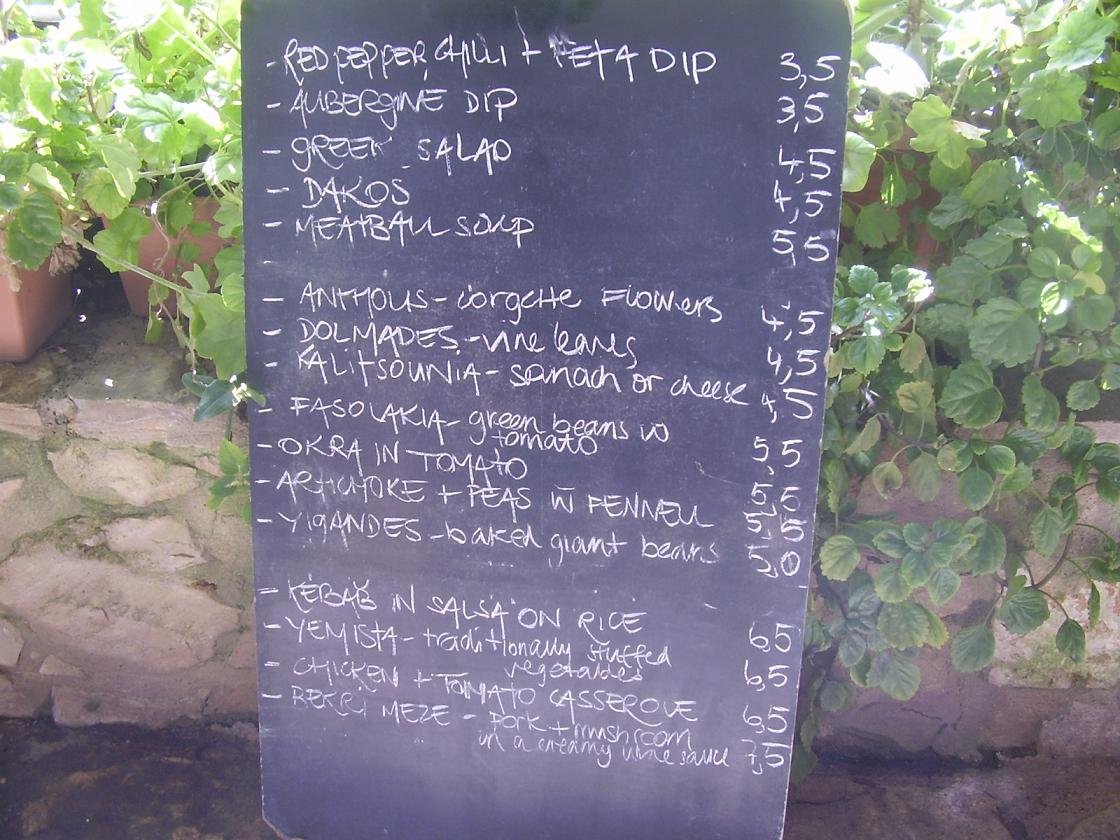 - RED PEPPER, CHILLI + FETA DIP 3,5
- AUBERGINE DIP 3,5
- GREEN SALAD 4,5
- DAKOS 4,5
- MEATBALL SOUP 5,5
- ANTHOUS - corgette FLOWERS 4,5
- DOLMADES - vine leaves 4,5
- KALITSOUNIA - spinach or cheese 4,5
- FASOLAKIA - green beans w
tomato 5,5
- OKRA IN TOMATO 5,5
- ARTICHOKE + PEAS W FENNELL 5,5
- YIGANDES - baked giant beans 5,0
- KEBAB IN SALSA ON RICE 6,5
- YEMISTA - traditionally stuffed
vegetables 6,5
- CHICKEN + TOMATO CASSEROLE 6,5
- BEKRI MEZE - pork + mushroom
in a creamy wine sauce 7,5